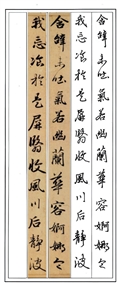 含辭未吐氣若幽蘭華容婀娜令
我忘飡於是屏翳收風川后靜波
含辭未吐氣若幽蘭華容婀娜令
我忘飡於是屏翳收風川后靜波